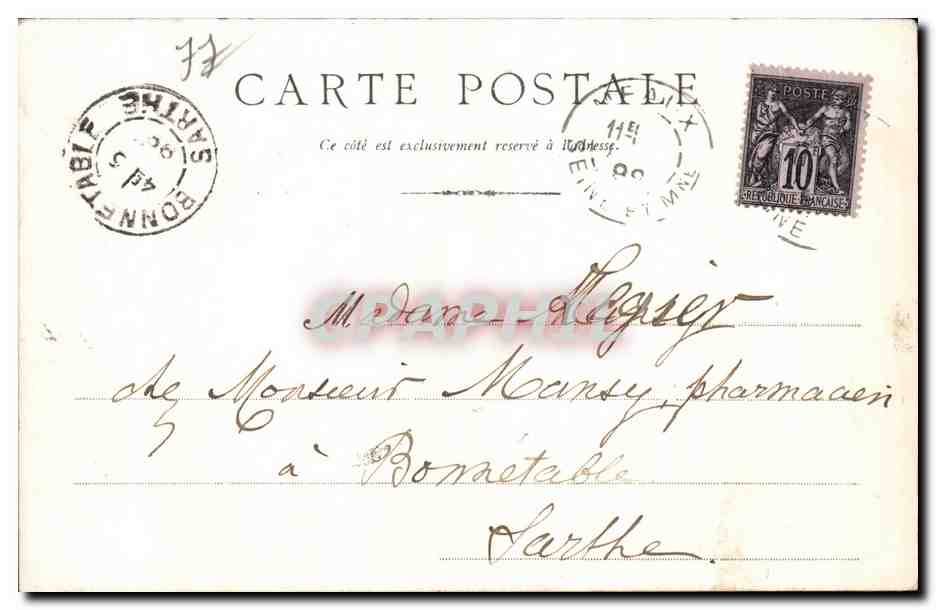 77
CARTE POSTALE
Ce côté est exclusivement reservé à l'adresse.
BONNETABLE SARTHE
MEAUX
11E
SEINE ET MNE
POSTE
10
REPUBLIQUE FRANÇAISE
Madame
chez Monsieur Mansy, pharmacien
à Bonnétable
Sarthe